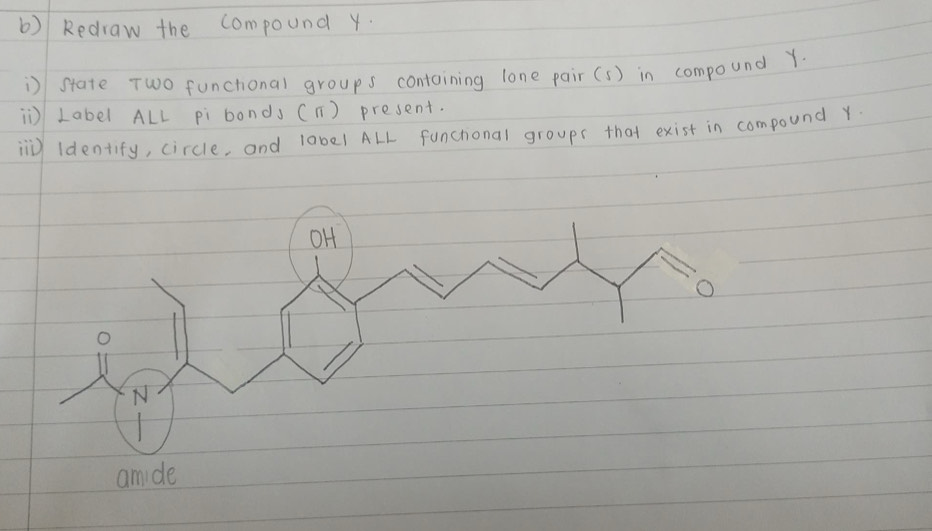 b) Redraw the compound Y.
i) State TWO functional groups containing lone pair (s) in compound Y.
ii) Label ALL pi bonds (π) present.
iii) Identify, circle, and label ALL functional groups that exist in compound Y.
OH
O
O
N
amide